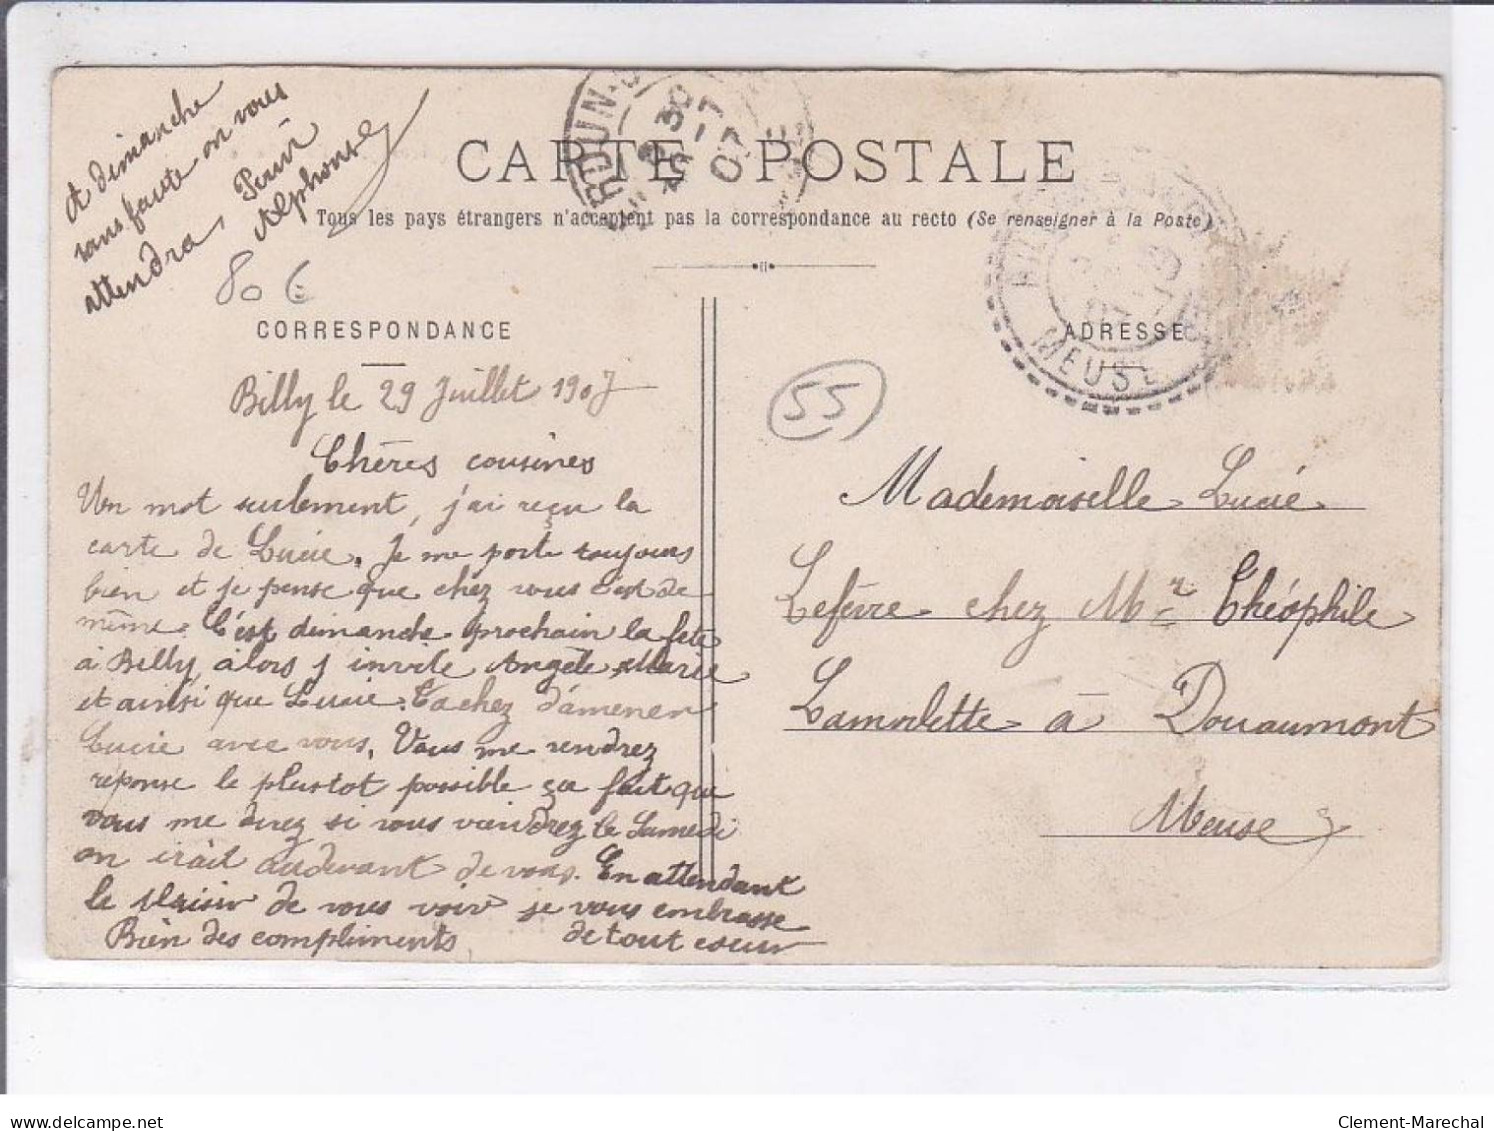 et dimanche
sans faute on vous
attendra,
Alphonse
CARTE POSTALE
Tous les pays étrangers n'acceptent pas la correspondance au recto (Se renseigner à la Poste)
80 €
CORRESPONDANCE
Billy le 29 Juillet 1907
Chères cousines
Un mot seulement, j'ai reçu la
carte de Lucie. Je me porte toujours
bien et je pense que chez vous c'est de
même. C'est dimanche prochain la fete
à Billy, alors j invite Angèle, Marie
et ainsi que Lucie. Tachez d'amener
Lucie avec vous. Vous me rendrez
réponse le plustot possible ça fait que
vous me direz si vous viendrez le Samedi
on irait audevant de vous. En attendant
le plaisir de vous voir je vous embrasse
Bien des compliments de tout coeur
ADRESSE
MEUSE
55
Mademoiselle Lucie
Lefèvre chez Mr Théophile
Lamolette à Douaumont
Meuse
www.delcampe.net
Clement-Marechal